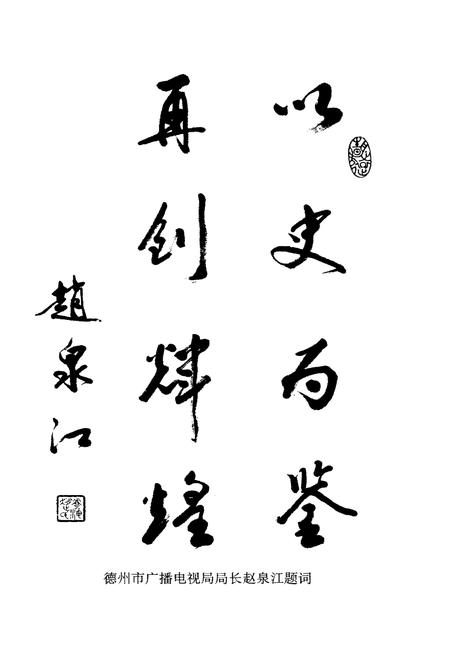 以史为鉴
再创辉煌
趙泉江
德州市广播电视局局长赵泉江题词